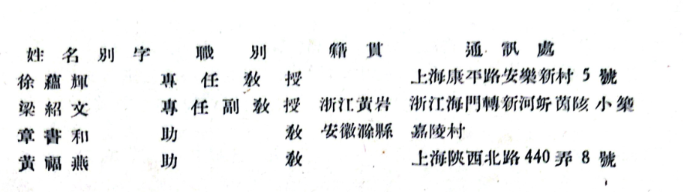 姓名別字 職別 籍貫 通訊處
徐蘊輝 專任教授 上海康平路安樂新村5號
梁紹文 專任副教授 浙江黃岩 浙江海門轉新河 茵陔小築
章書和 助教 安徽滁縣 嘉陵村
黃福燕 助教 上海陝西北路440弄8號